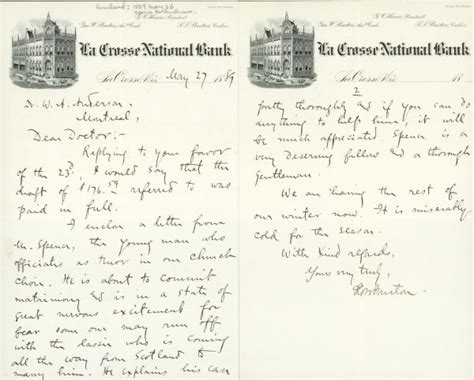 G. C. Hixon, President.
Geo. W. Burton, Ass't Cash. F. P. Hixon, Cashier.
La Crosse National Bank
La Crosse, Wis. May 27 1889
Dr. W. A. Anderson
Montreal
Dear Doctor;-
Replying to your favor
of the 23d, I would say that the
draft of $176.59 referred to was
paid in full.
I enclose a letter from
Mr. Spence, the young man who
officiates as tenor in our church
choir. He is about to commit
matrimony & is in a state of
great nervous excitement for
fear some one may run off
with the lassie who is coming
all the way from Scotland to
marry him. He explains his case
La Crosse National Bank
La Crosse, Wis. 18
2
pretty thoroughly and if you can do
anything to help him, it will
be much appreciated. Spence is a
very deserving fellow and a thorough
gentleman.
We are having the rest of
our winter now. It is miserably
cold for the season.
With kind regards,
Yours very truly,
Burton